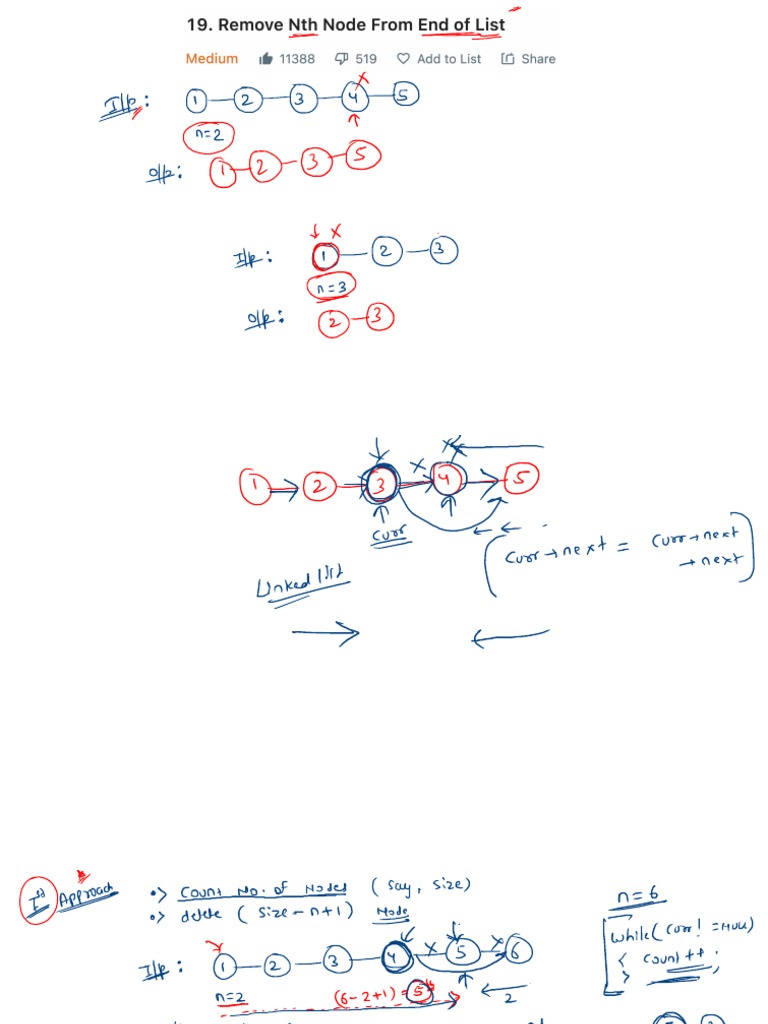 19. Remove Nth Node From End of List
Medium 11388 519 Add to List Share
I/p: 1 2 3 4 5
n=2
O/p: 1 2 3 5
I/p: 1 2 3
n=3
O/p: 2 3
1 2 3 4 5
curr
(curr→next = curr→next
→next)
Linked list
Ist Approach
•> Count No. of Nodes (say, size)
•> delete (size - n+1) Node
n=6
while(curr! =NULL)
{ count++;
}
I/p: 1 2 3 4 5 6
n=2 (6-2+1) = 5th
2